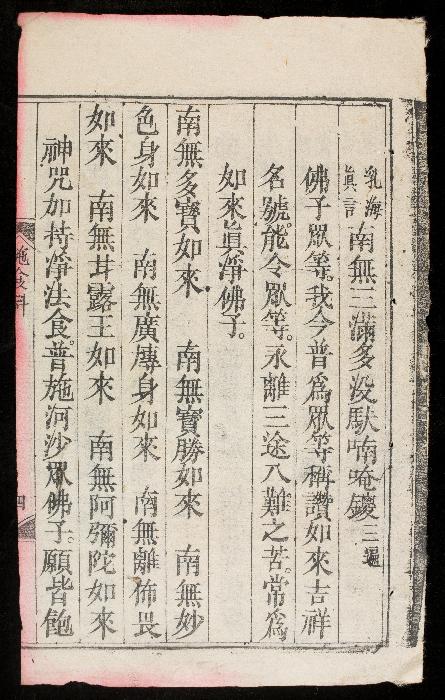 乳海
眞言
南無三滿多沒馱喃唵鑁三遍
佛子眾等。我今普為眾等稱讚如來吉祥
名號。能令眾等。永離三途八難之苦。常為
如來眞淨佛子。
南無多寶如來　南無寶勝如來　南無妙
色身如來　南無廣博身如來　南無離怖畏
如來　南無甘露王如來　南無阿彌陀如來
神咒加持淨法食。普施河沙眾佛子。願皆飽
施食科
四